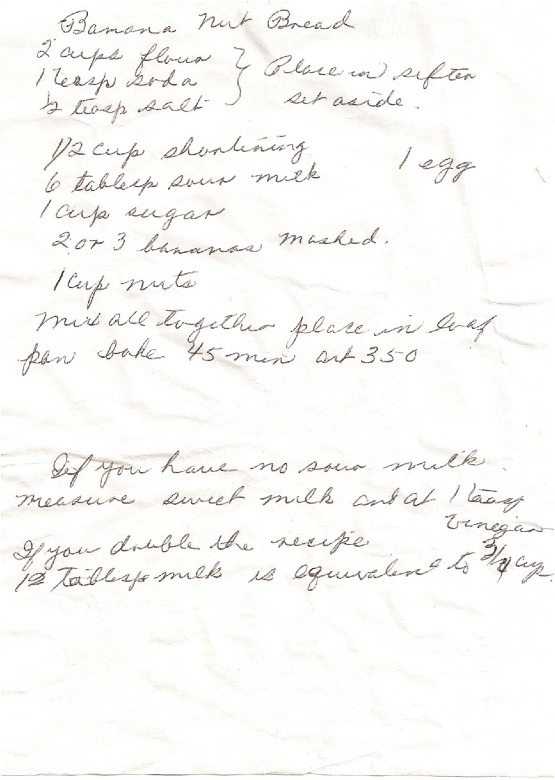 Banana Nut Bread
2 cups flour
1 teasp soda
1/2 teasp salt
} Place in sifter
set aside.
1/2 cup shortining
1 egg
6 tablesp sour milk
1 cup sugar
2 or 3 bananas mashed.
1 cup nuts
Mix all together place in loaf
pan bake 45 min at 350
If you have no sour milk.
measure sweet milk and at 1 teasp
vinegar
If you double the recipe
12 tablesp milk is equivalent to 3/4 cup.